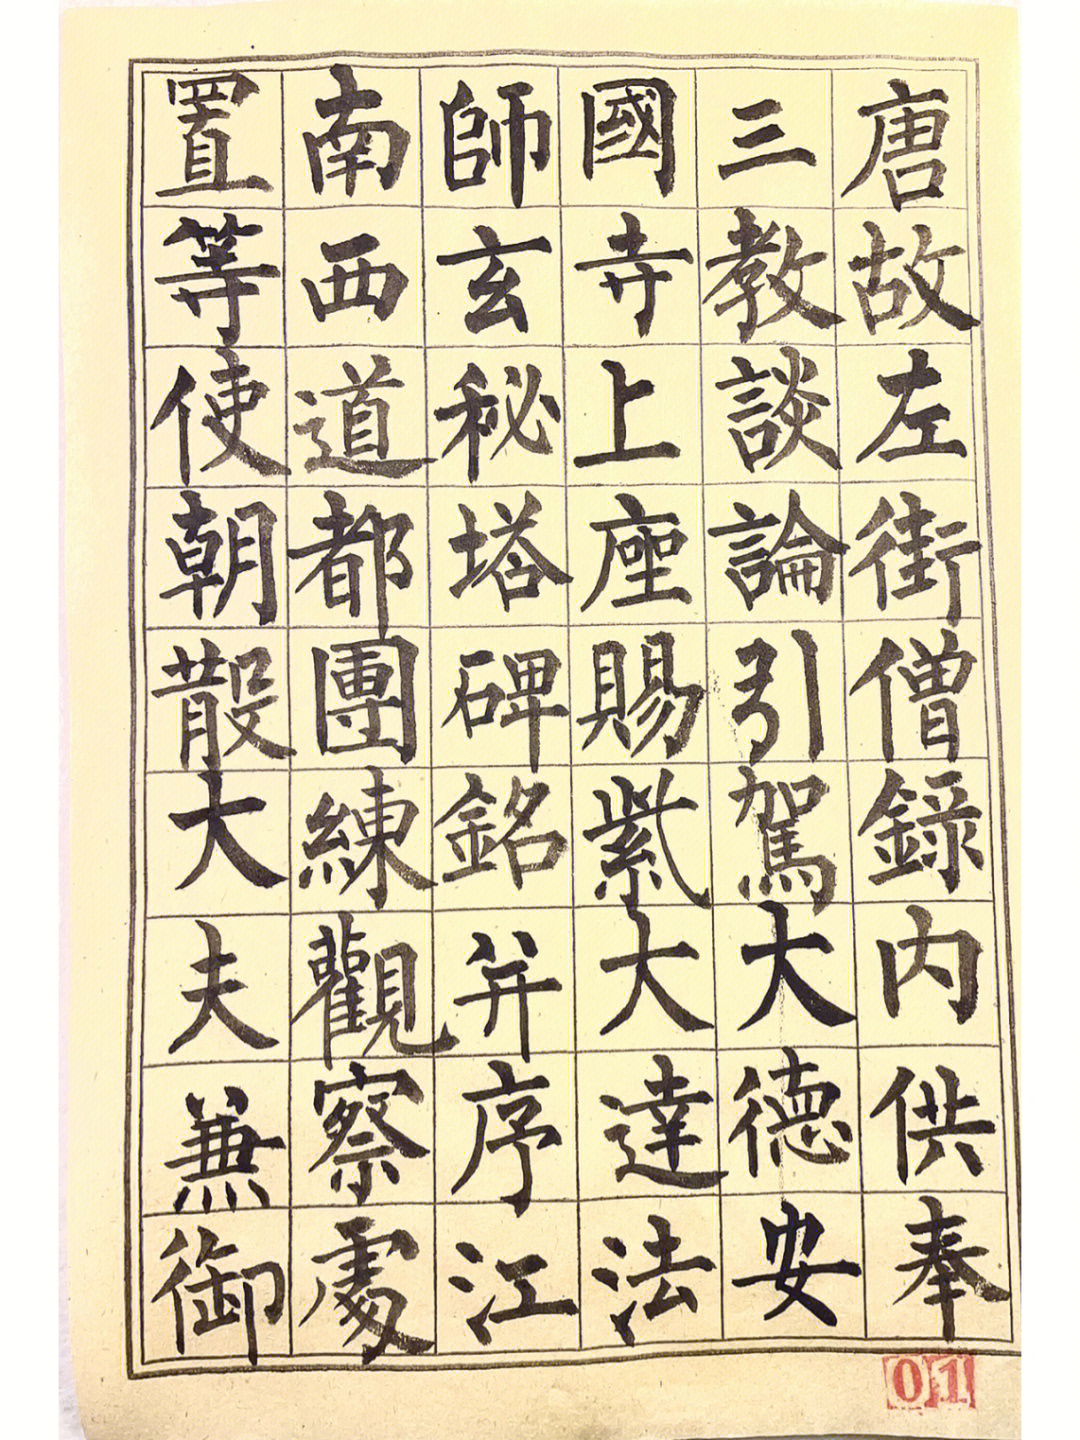 唐故左街僧錄內供奉
三教談論引駕大德安
國寺上座賜紫大達法
師玄秘塔碑銘并序江
南西道都團練觀察處
置等使朝散大夫兼御
01